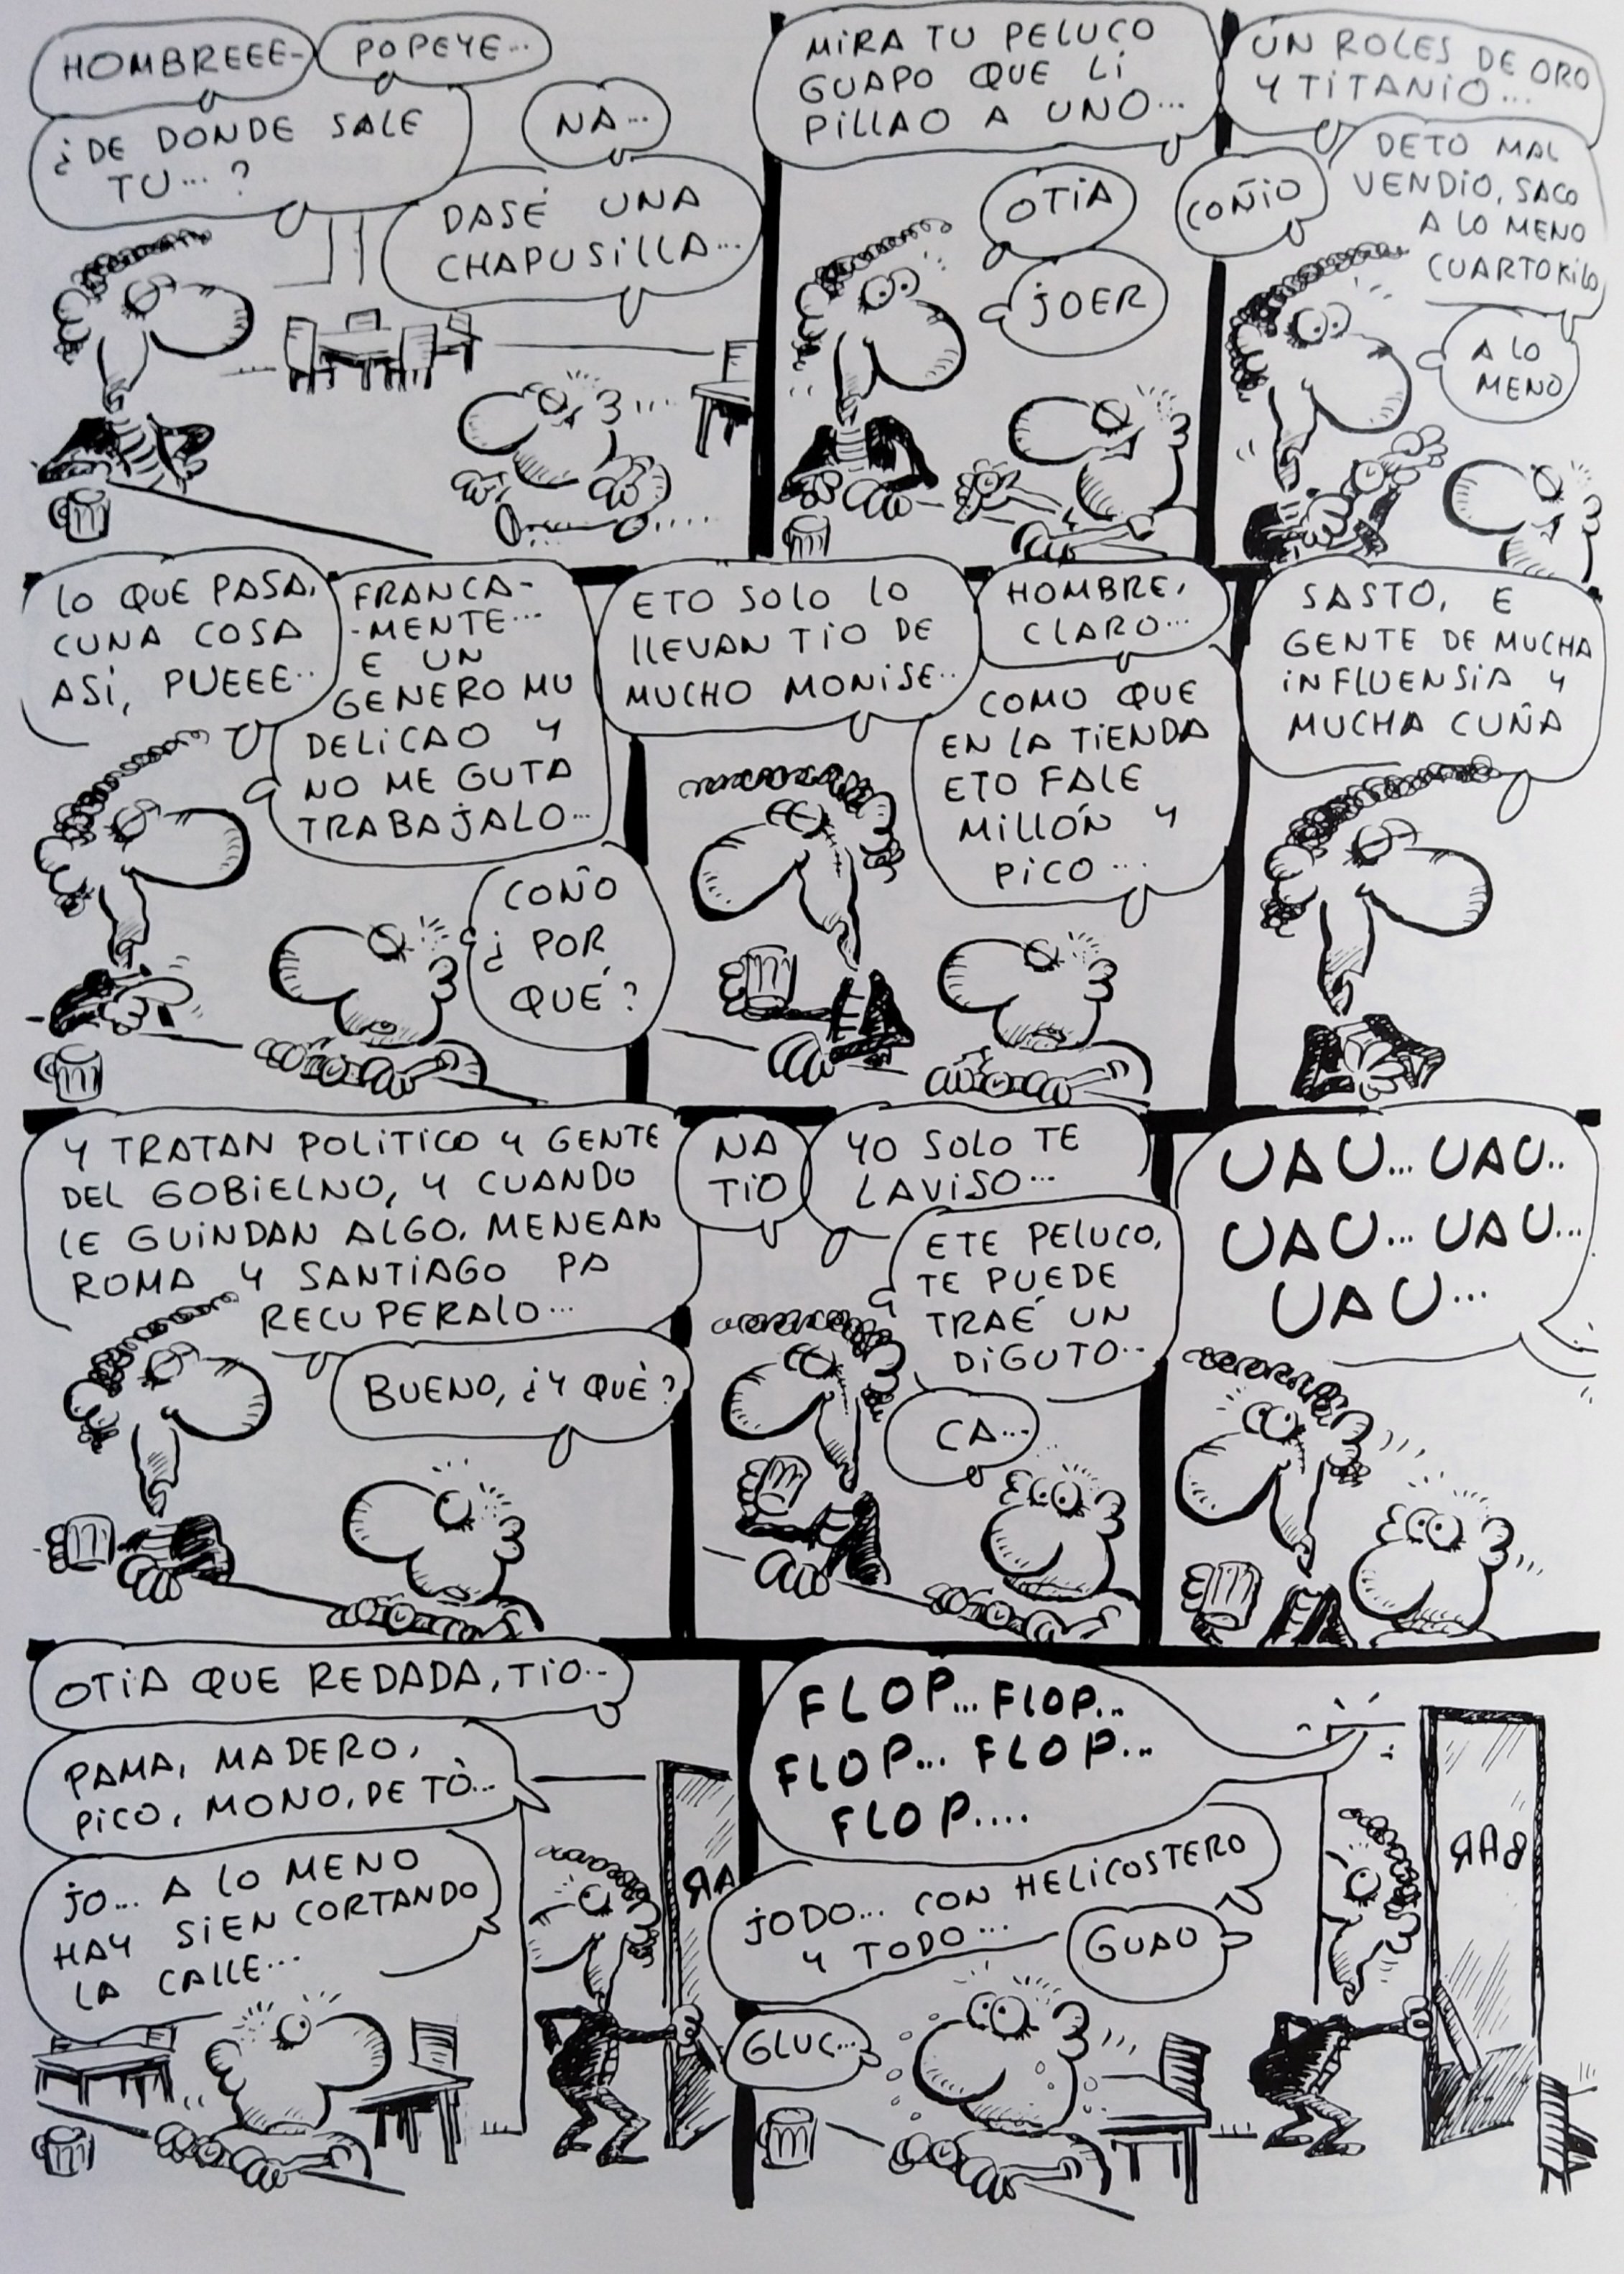 HOMBREEE-
POPEYE...
¿DE DONDE SALE
TU...?
NA...
DASÉ UNA
CHAPUSILLA...
MIRA TU PELUCO
GUAPO QUE LI
PILLAO A UNO...
OTIA
JOER
UN ROLES DE ORO
Y TITANIO...
COÑIO
DETO MAL
VENDIO, SACO
A LO MENO
CUARTOKILO
A LO
MENO
LO QUE PASA,
CUNA COSA
ASÍ, PUEEE...
FRANCA-
-MENTE...
E UN
GENERO MU
DELICAO Y
NO ME GUTA
TRABAJALO...
COÑO
¿POR
QUÉ?
ETO SOLO LO
LLEVAN TIO DE
MUCHO MONISE...
HOMBRE,
CLARO...
COMO QUE
EN LA TIENDA
ETO FALE
MILLÓN Y
PICO...
SASTO, E
GENTE DE MUCHA
INFLUENSIA Y
MUCHA CUÑA
Y TRATAN POLITICO Y GENTE
DEL GOBIELNO, Y CUANDO
LE GUINDAN ALGO. MENEAN
ROMA Y SANTIAGO PA
RECUPERALO...
BUENO, ¿Y QUÉ?
NA
TIO
YO SOLO TE
LAVISO...
ETE PELUCO,
TE PUEDE
TRAÉ UN
DIGUTO...
CA...
UAU... UAU..
UAU... UAU...
UAU...
OTIA QUE REDADA, TIO...
PAMA, MADERO,
PICO, MONO, DE TÒ...
JO... A LO MENO
HAY SIEN CORTANDO
LA CALLE...
RA
FLOP... FLOP...
FLOP... FLOP...
FLOP....
JODO... CON HELICOSTERO
Y TODO...
GUAU
GLUC...
BAR